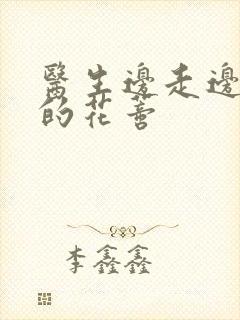 醫生邊走邊
的花善
李鑫鑫